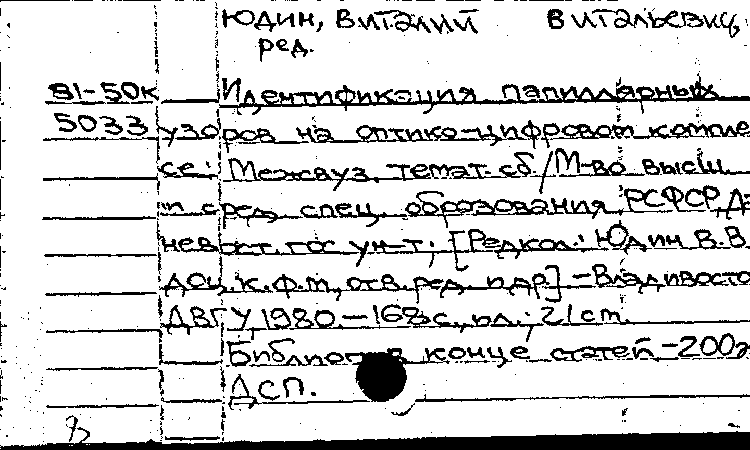 Юдин, Виталий Витальевич,
ред.
81-50к Идентификация папиллярных
5033 узоров на оптико-цифровом компле
се: Межвуз. темат. сб./М-во высш.
и сред. спец. образования РСФСР, Да
невост. гос ун-т; [Редкол.: Юдин В.В.
доц. к.ф.м., отв. ред. и др.] – Владивосто
ДВГУ, 1980. – 168с., ил.; 21 cm.
Библиогр. в конце статей – 200э
ДСП.